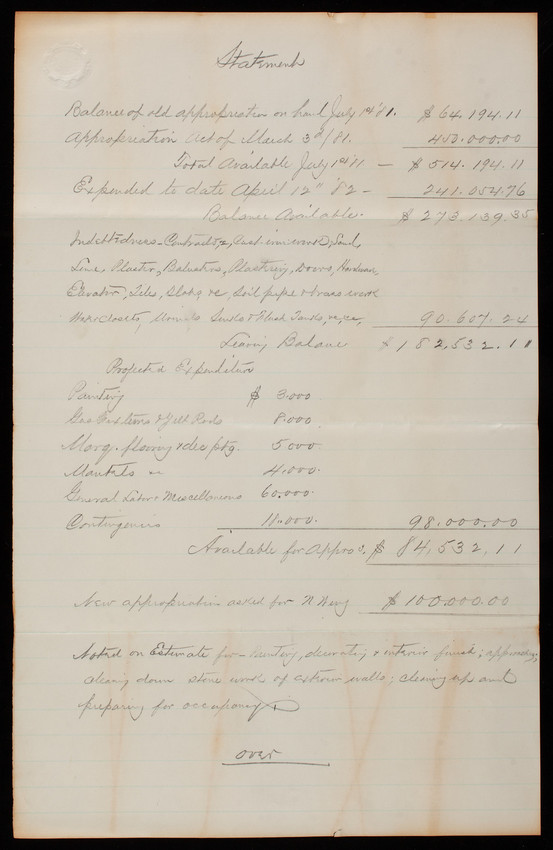 Statement
Balance of old appropriation on hand July 1st '81. $ 64,194.11
Appropriation Act of March 3d/81. 450.000.00
Total Available July 1st — $ 514.194.11
Expended to date April 12th '82 - 241.054.76
Balance Available. $ 273,139.35
Indebtedness - Contracts, Cast iron work, Sand,
Lime, Plaster, Balusters, Plastering, Doors, Hardware,
Elevator, Tiles, Slabs &c, Soil pipe & brass work
Water closets, Sinks & Flush Tanks, &c, &c, 90.607.24
Leaving Balance $ 182,532.11
Projected Expenditure
Painting $ 3.000
Gas & Rods 8.000.
Marq. flooring & dec ptg. 5000.
Mantels &c 4.000.
General Labor & Miscellaneous 60.000.
Contingencies 18.000. 98.000.00
Available for Approv. $ 84,532.11
New appropriation asked for N. Wing $ 100.000.00
Noted on Estimate for decorating & interior finish;
cleaning down stone work of exterior walls; cleaning up and
preparing for occupancy
over